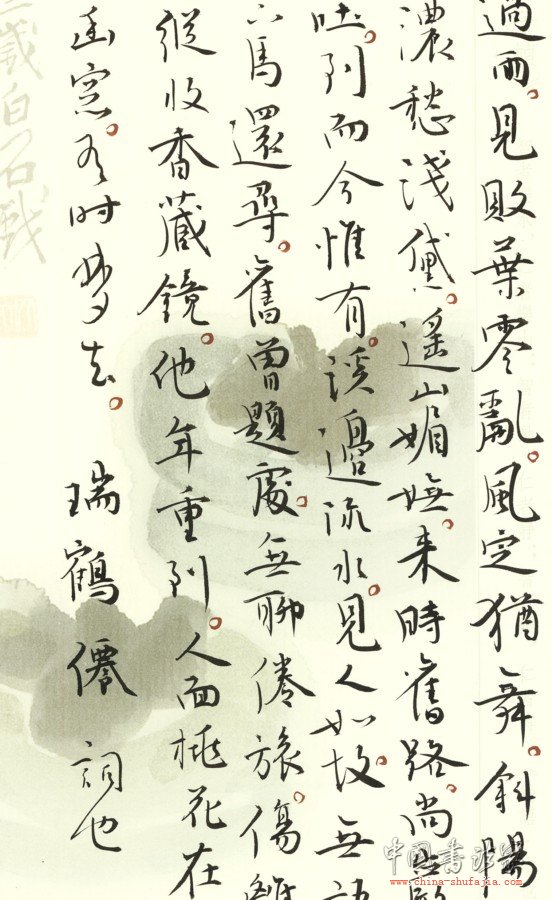 過雨見敗葉零亂。風定猶舞。斜陽
濃愁淺黛。遥山媚嫵。来時舊路。尚
吐。到而今惟有。溪邊流水。見人如故。無語
馬還尋。舊曾題處。無聊倦旅。傷離
縱收香藏鏡。他年重到。人面桃花在
幽窓。有時夢去。瑞鶴僊詞也
中國書法家
www.china-shufajia.com